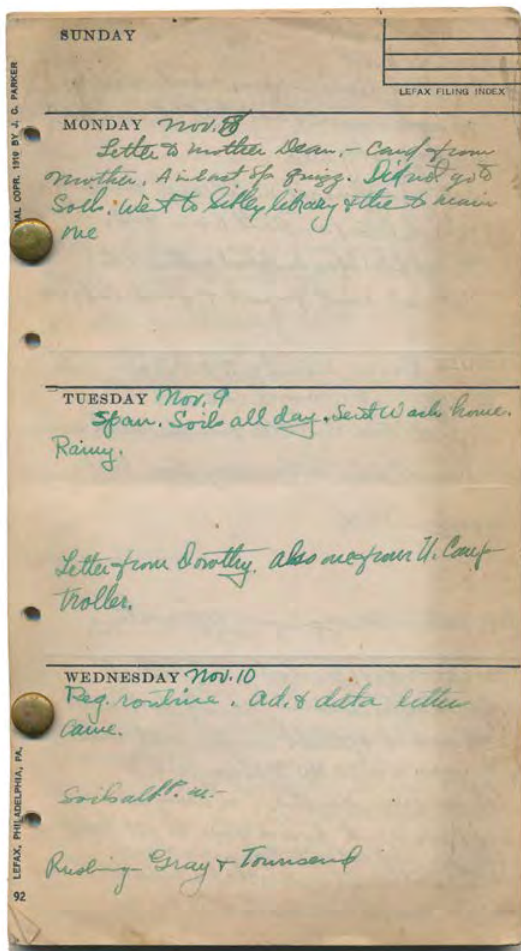 SUNDAY
LEFAX FILING INDEX
COPR. 1910 BY J. C. PARKER
MONDAY Nov. 8
Letter to Mother Dean, - Card from
Mother. A in last Sp. quizz. Did not go to
Soils. Went to Sibley library & the to main
one
TUESDAY Nov. 9
Span. Soils all day. Sent Wash home.
Rainy.
Letter from Dorothy. also one from U. Comp-
troller.
WEDNESDAY Nov. 10
Reg. routine. Ad. & data letter
came.
Soils all P. m. -
Rushing - Gray & Townsend
LEFAX, PHILADELPHIA, PA.
92